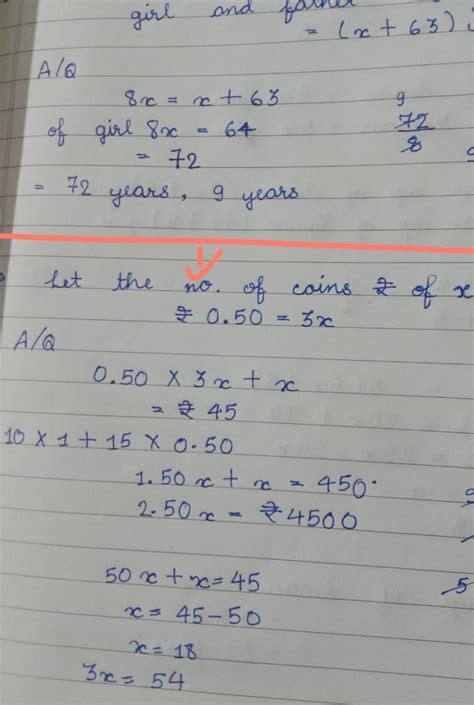 girl and father
= (x + 63)
A/Q
8x = x + 63
of girl 8x = 64
= 72
9
72
8
= 72 years, 9 years
Let the no. of coins ₹ of x
₹ 0.50 = 3x
A/Q
0.50 × 3x + x
= ₹ 45
10 × 1 + 15 × 0.50
1.50 x + x = 450
2.50 x = ₹4500
50 x + x = 45
5
x = 45 - 50
x = 18
3x = 54